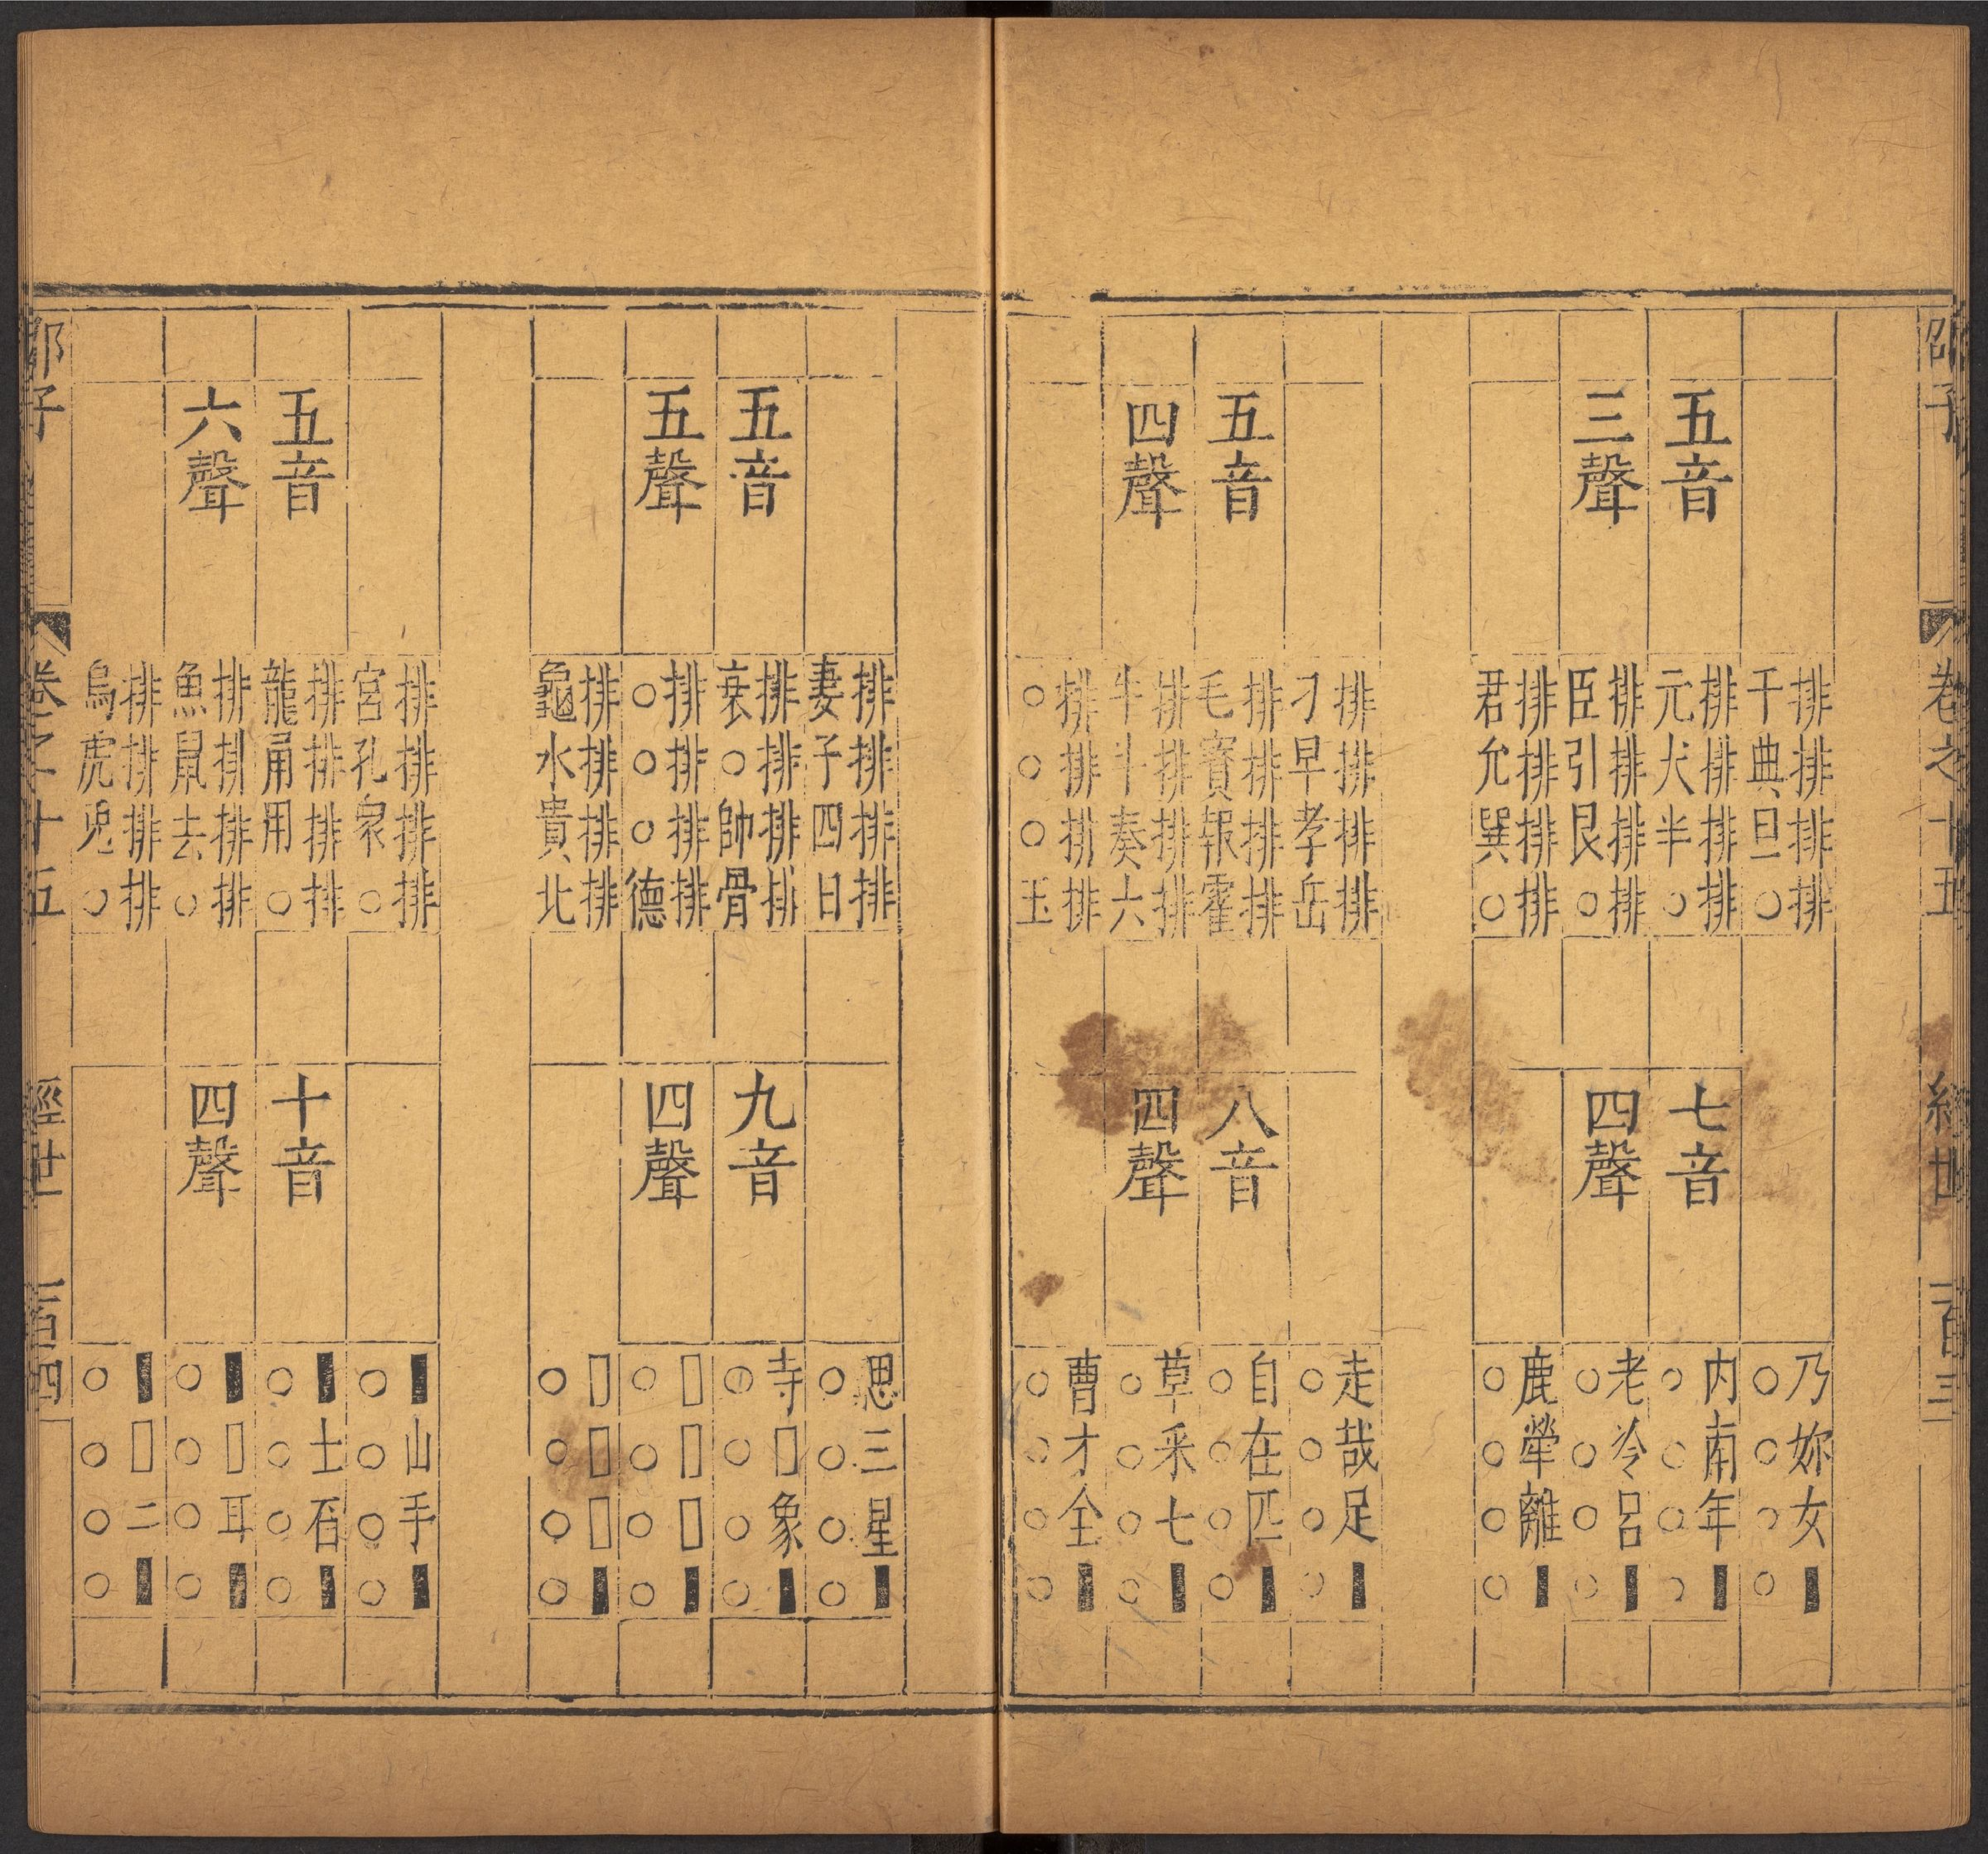 卷之十五
百三
五音
三聲
排排排排
千典旦○
排排排排
元犬半○
排排排排
臣引艮○
排排排排
君允巽○
七音
四聲
乃妳女▮
○○○○
內南年▮
○○○○
老冷呂▮
○○○○
鹿犖離▮
○○○○
五音
四聲
排排排排
刁早孝岳
排排排排
毛寶報霍
排排排排
牛斗奏六
排排排排
○○○玉
八音
四聲
走哉足▮
○○○○
自在匹▮
○○○○
草采七▮
○○○○
曹才全▮
○○○○
五音
五聲
排排排排
妻子四日
排排排排
衰○帥骨
排排排排
○○○德
排排排排
龜水貴北
九音
四聲
思三星▮
○○○○
寺▯象▮
○○○○
▯▯▯▮
○○○○
▯▯▯▮
○○○○
五音
六聲
排排排排
宮孔衆○
排排排排
龍甬用○
排排排排
魚鼠去○
排排排排
烏虎兎○
十音
四聲
▮山手▮
○○○○
▮士石▮
○○○○
▮▯耳▮
○○○○
▮▯二▮
○○○○
邵子
卷之十五
經世
百四